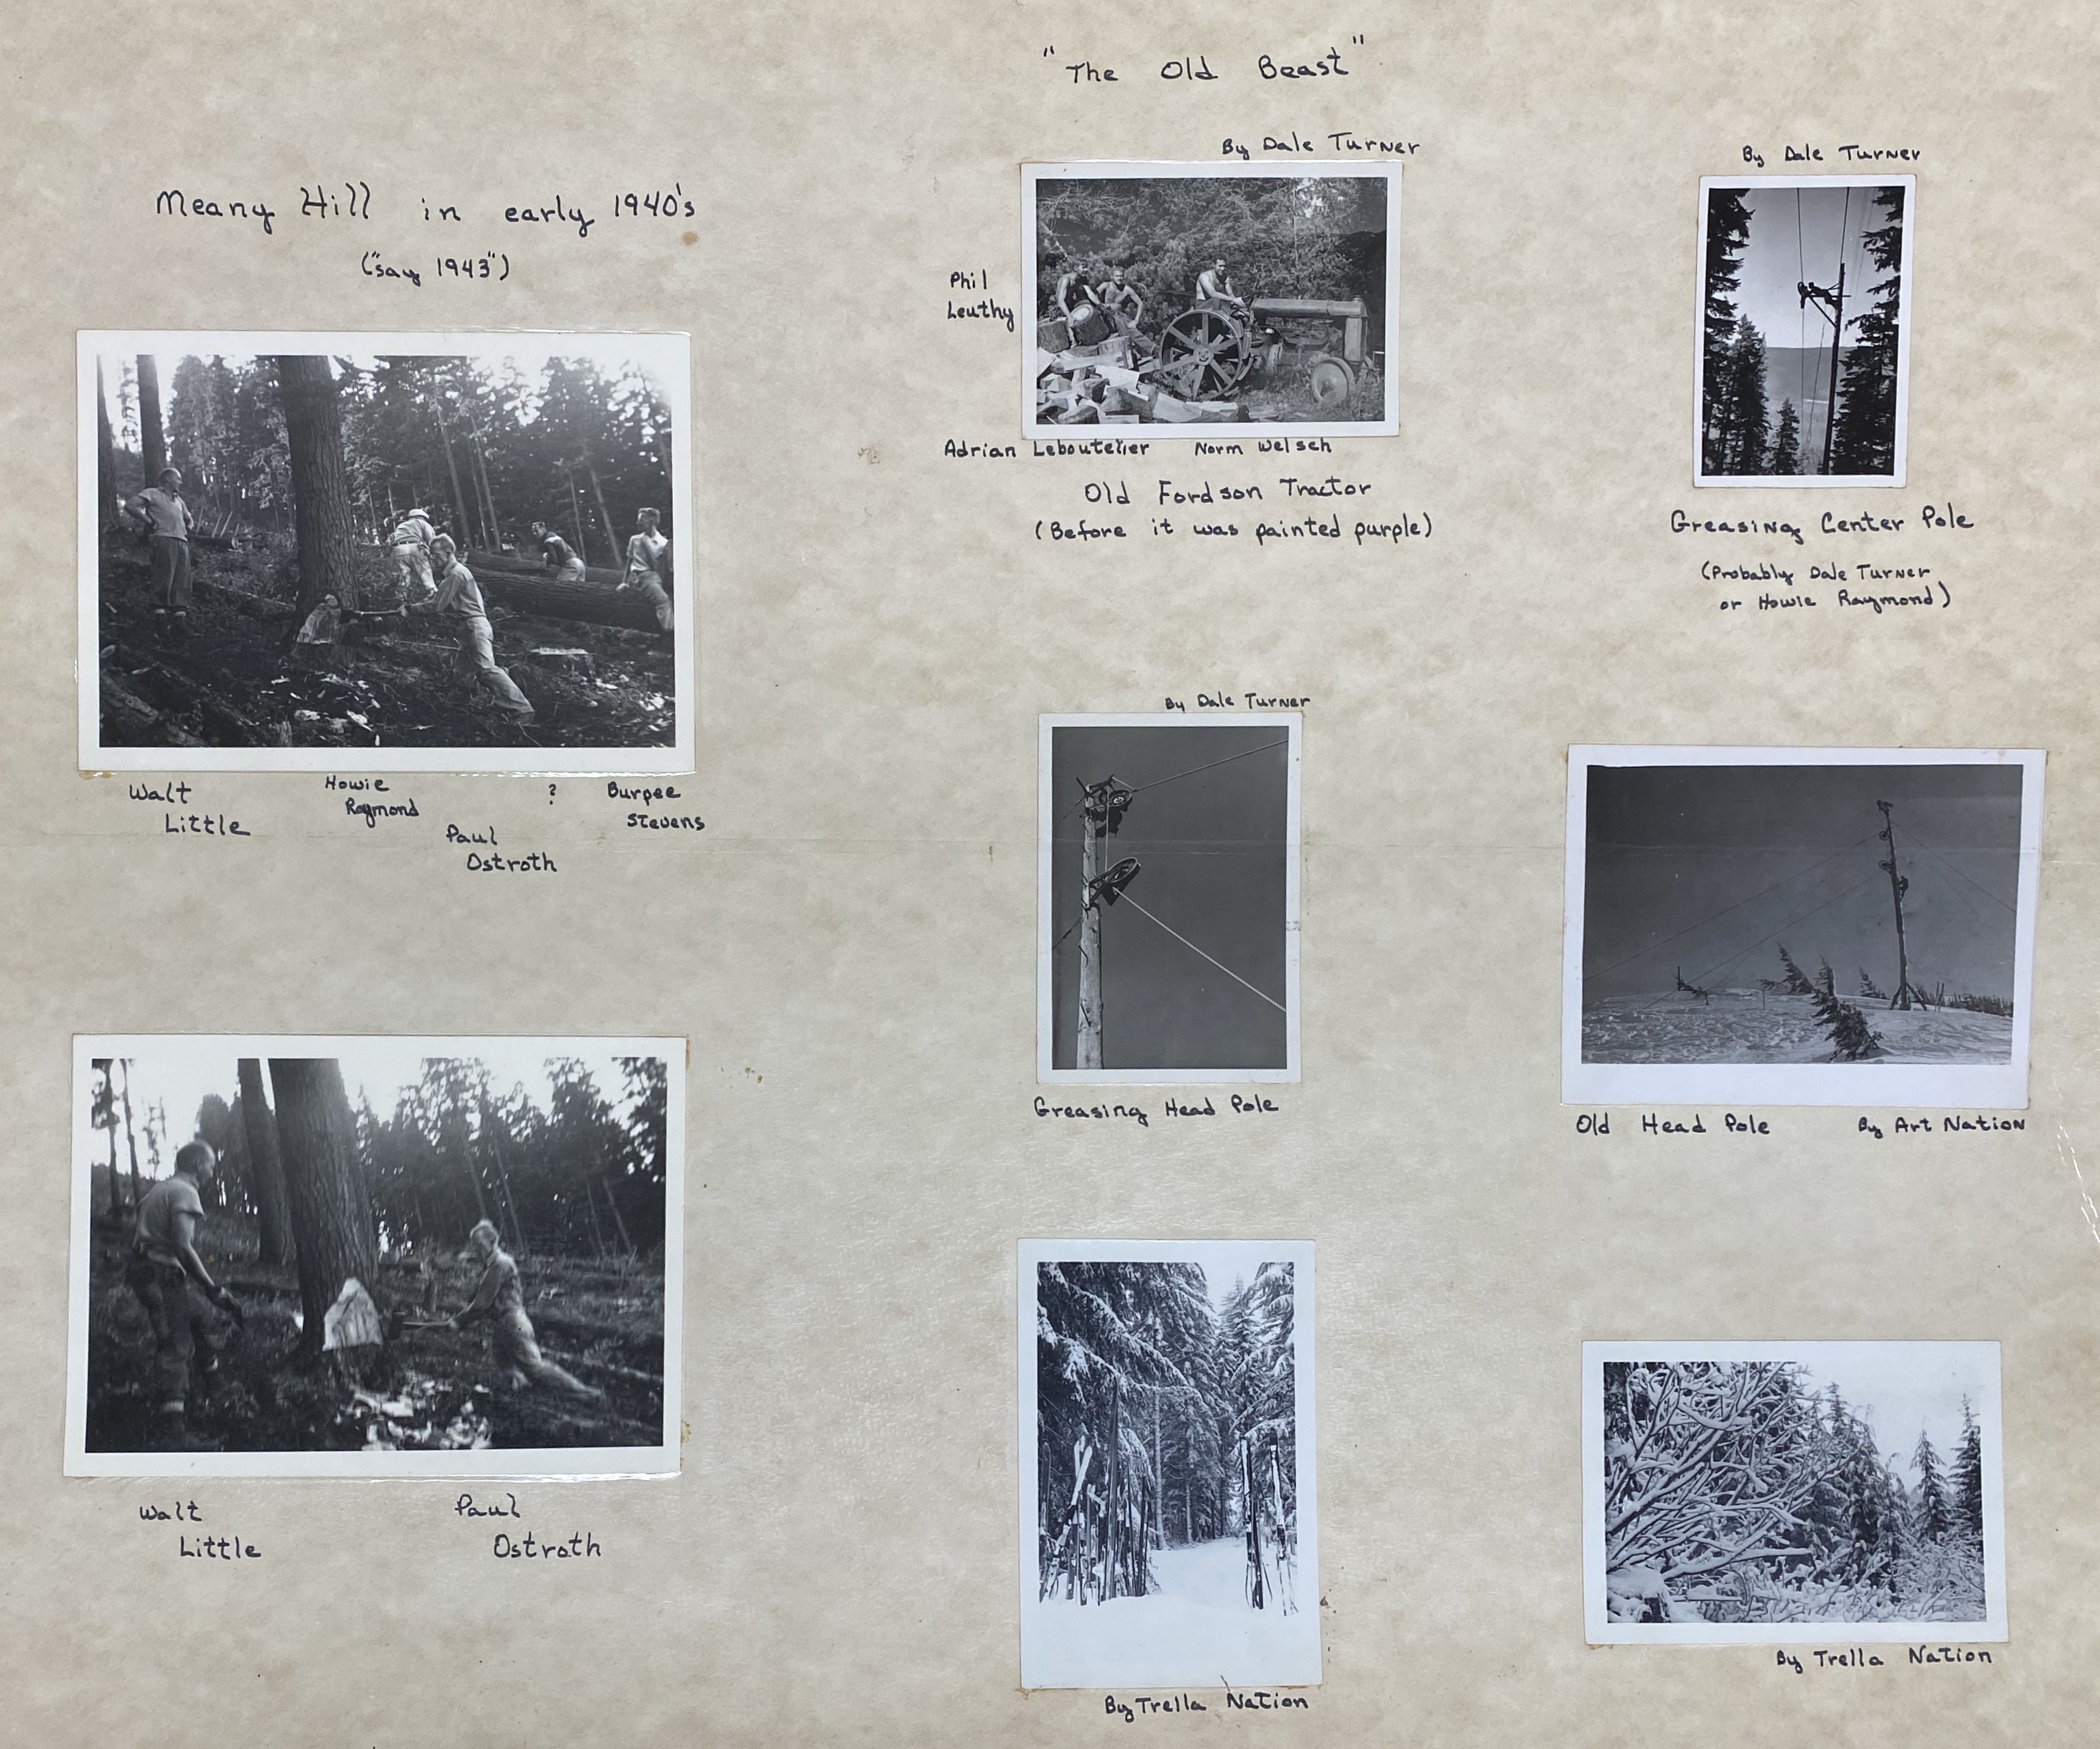 "The Old Beast"
Meany Hill in early 1940's
("say 1943")
Walt
Little
Howie
Raymond
Paul
Ostroth
?
Burpee
Stevens
Walt
Little
Paul
Ostroth
By Dale Turner
Phil
Leuthy
Adrian Leboutellier Norm Welsch
Old Fordson Tractor
(Before it was painted purple)
By Dale Turner
Greasing Center Pole
(Probably Dale Turner
or Howie Raymond)
By Dale Turner
Greasing Head Pole
Old Head Pole By Art Nation
By Trella Nation
By Trella Nation